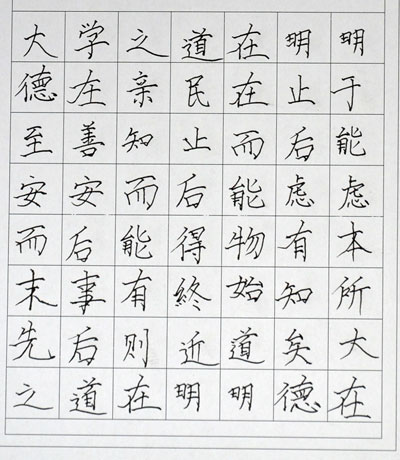 大学之道在明明
德在亲民在止于
至善知止而后能
安安而后能虑虑
而后能得物有本
末事有終始知所
先后则近道矣大
之道在明明德在